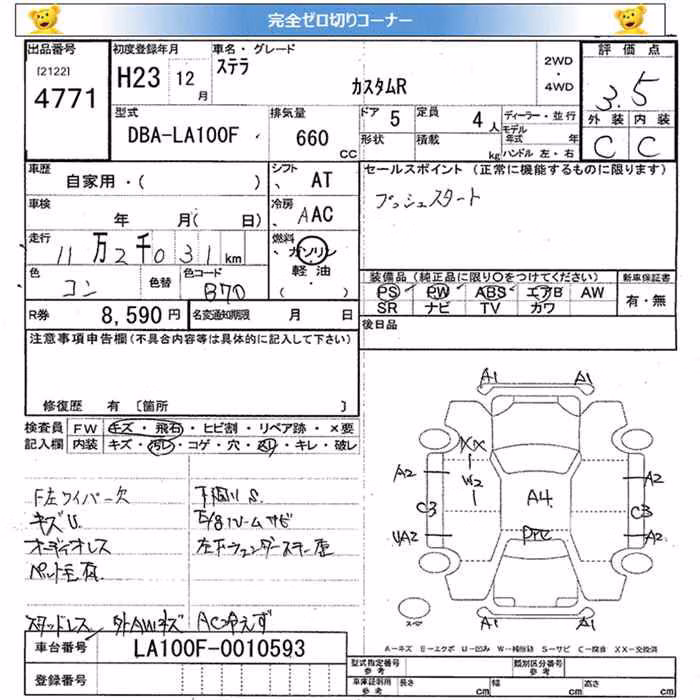 完全ゼロ切りコーナー
出品番号 初度登録年月 車名・グレード 2WD・4WD 評価点
[2122] 4771 H23 12月 ステラ カスタムR 3.5
型式 DBA-LA100F 排気量 660 CC
ドア 5 定員 4人 ディーラー・並行
形状 積載 kg モデル年式 年
ハンドル 左・右
外装 内装
C C
車歴 自家用・( ) シフト AT
セールスポイント (正常に機能するものに限ります)
プッシュスタート
車検 年 月( 日) 冷房 AAC
走行 11万2千031km 燃料 ガソリン 軽油 ( )
色 コン 色替 色コード B70
装備品 (純正品に限り○をつけてください) 新車保証書
PS PW ABS エアB AW 有・無
SR ナビ TV カワ
R券 8,590円 名変通知期限 月 日
後日品
注意事項申告欄(不具合内容等は具体的に記入して下さい)
修復歴 有 [箇所 ]
検査員 FW キズ・飛石・ヒビ割・リペア跡・×要
記入欄 内装 キズ・汚レ・コゲ・穴・・キレ・破レ
F左ワイパー欠 下廻りS
キズU
オーディオレス
ペット毛有
スタッドレス 外AWキズ AC冷えず
A1 A1
XX
A2 W2 A2
C3 A4 C3
UA2 A2
A1 A1
スペア
A-キズ E-エクボ U-凹み W-補修跡 S-サビ C-腐食 XX-交換済
車台番号 LA100F-0010593
登録番号
型式指定番号 参考 類別区分番号 参考
車庫証明用 参考 長さ cm 幅 cm 高さ cm